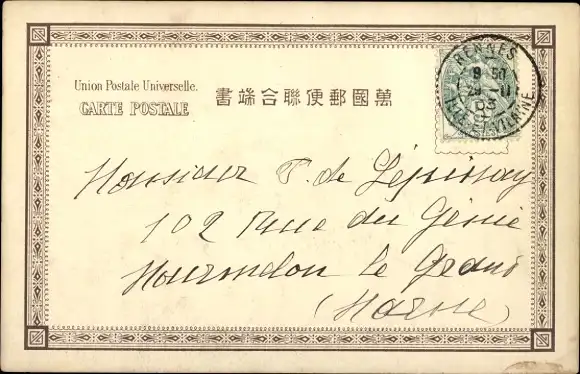 Union Postale Universelle.
CARTE POSTALE
書端合聯便郵國萬
RENNES
9 50
ILLE ET VILAINE
Monsieur P. de Lépinay
102 Rue du Génie
Mourmelon le Grand
(Marne)